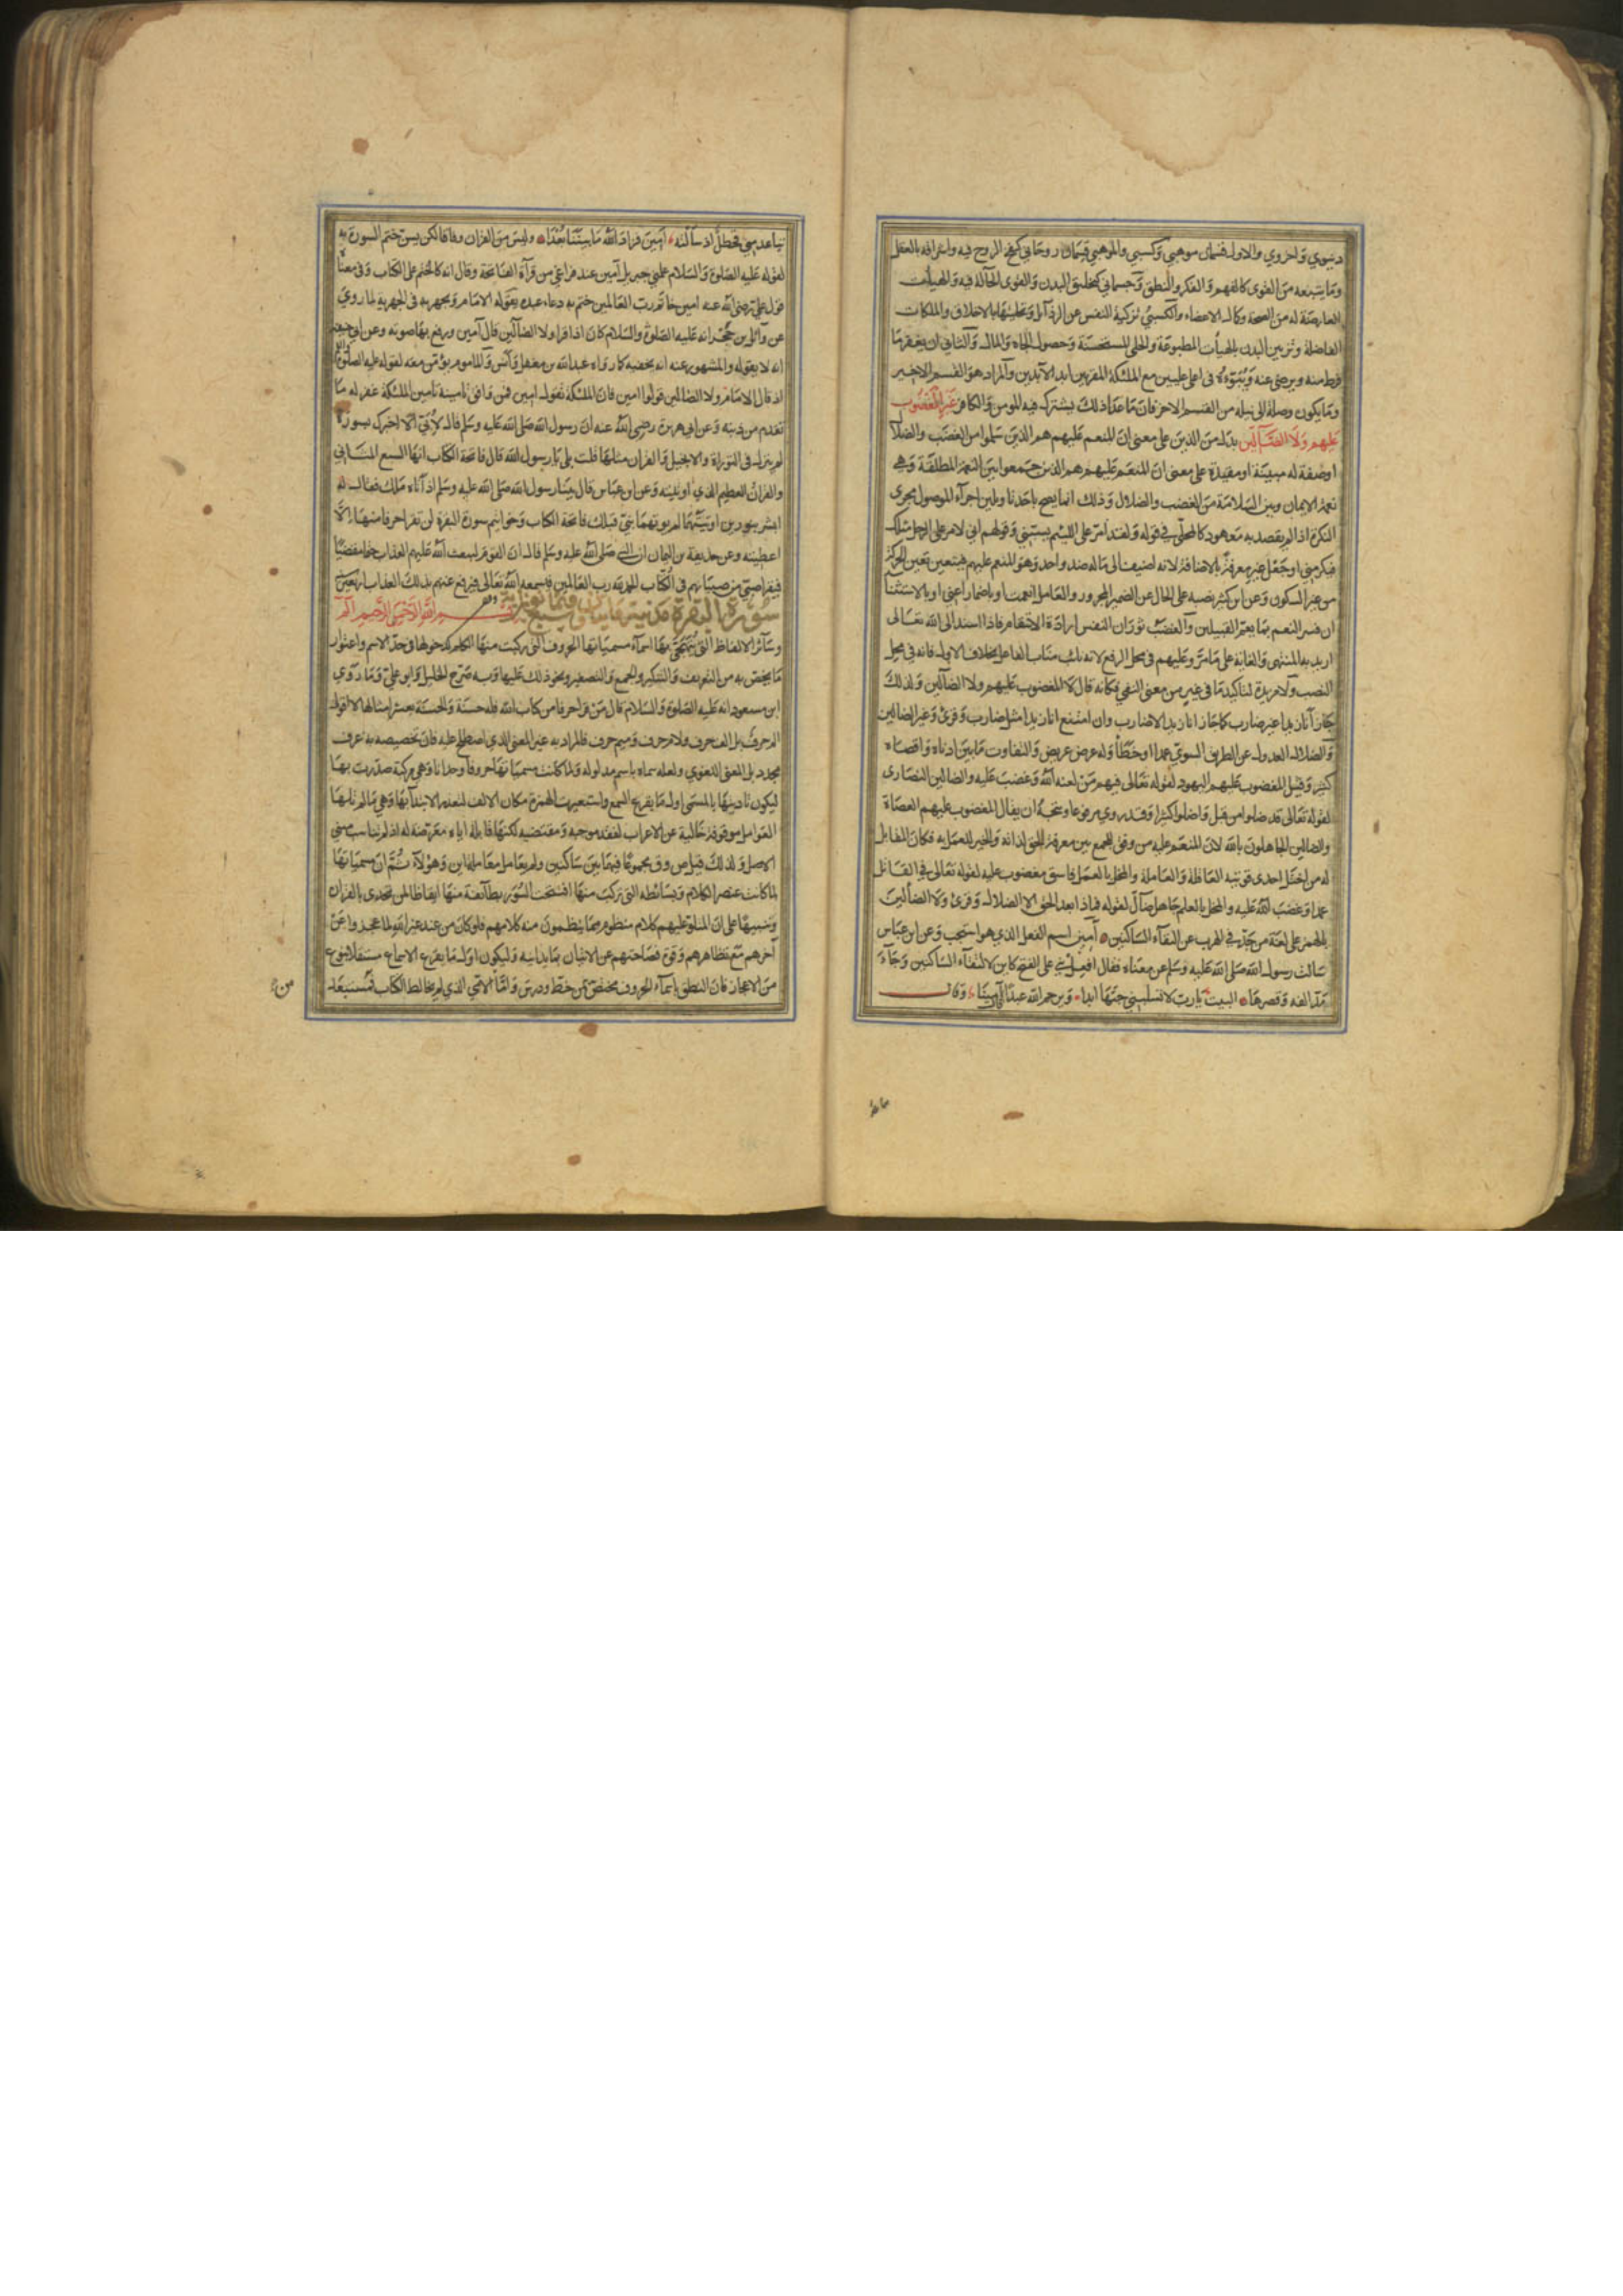 دنيوي واخروي والاول قسمان موهبي وكسبي والموهبي قسمان روحاني كنفخ الروح فيه واشراقه بالعقل
وما يتبعه من القوى كالفهم والفكر والنطق وجسماني كتخليق البدن والقوى الحالة فيه والهيأت
العارضة له من الصحة وكمال الاعضاء والكسبي تزكية النفس عن الرذآئل وتحليتها بالاخلاق والملكات
الفاضلة وتزيين البدن بالهيأت المطبوعة والحلي المستحسنة وحصول الجاه والمال والثاني ان يغفر ما
فرط منه ويرضى عنه ويبوءه في اعلى عليين مع الملئكة المقربين ابد الآبدين والمراد هو القسم الاخير
وما يكون وصلة الى نيله من القسم الاخر فان ما عدا ذلك يشترك فيه المومن والكافر غير المغضوب
عليهم ولا الضآلين بدل من الذين على معنى ان المنعم عليهم هم الذين سلموا من الغضب والضلال
اوصفة له مبينة او مقيدة على معنى ان المنعم عليهم هم الذين جمعوا بين النعمة المطلقة وهي
نعمة الايمان وبين السلامة من الغضب والضلال وذلك انما يصح باحد تاويلين اجرآء الموصول مجرى
النكرة اذا لم يقصد به معهود كالمحلى في قوله ولقد امر على اللئيم يسبني وقولهم اني لامر على الرجل مثلك
فيكرمني او جعل غير معرفة بالاضافة لانه اضيف الى ماله ضد واحد وهو المنعم عليهم فيتعين تعين الحركة
من غير السكون وعن ابن كثير نصبه على الحال عن الضمير المجرور والعامل انعمت او باضمار اعني او بالاستثنا
ان فسر النعم بما يعم القبيلين والغضب ثوران النفس ارادة الانتقام فاذا اسند الى الله تعالى
اريد به المنتهى والغاية على ما مر وعليهم في محل الرفع لانه نائب مناب الفاعل بخلاف الاول فانه في محل
النصب ولا مزيدة لتاكيد ما في غير من معنى النفي فكانه قال لا المغضوب عليهم ولا الضآلين ولذلك
جاز انا زيدا غير ضارب كما جاز انا زيدا لا ضارب وان امتنع انا زيدا مثل ضارب وقرئ وغير الضالين
والضلال العدول عن الطريق السوي عمدا او خطأ وله عرض عريض والتفاوت ما بين ادناه واقصاه
كثير وقيل المغضوب عليهم اليهود لقوله تعالى فيهم من لعنه الله وغضب عليه والضالين النصارى
لقوله تعالى قد ضلوا من قبل واضلوا كثيرا وقد روي مرفوعا ويتجه ان يقال المغضوب عليهم العصاة
والضالين الجاهلون بالله لان المنعم عليه من وفق للجمع بين معرفة الحق لذاته والخير للعمل به فكان المقابل
له من اختل احدى قوتيه العاقلة والعاملة والمخل بالعمل فاسق مغضوب عليه لقوله تعالى في القاتل
عمدا وغضب الله عليه والمخل بالعلم جاهل ضآل لقوله فماذا بعد الحق الا الضلال وقرئ ولا الضألين
بالهمز على لغة من جد في الهرب عن التقآء الساكنين آمين اسم الفعل الذي هو استجب وعن ابن عباس
سالت رسول الله صلى الله عليه وسلم عن معناه فقال افعل بني على الفتح كاين لالتقآء الساكنين وجآء
مد الفه وقصرها البيت يا رب لا تسلبني حبها ابدا ويرحم الله عبدا قال آمينا وقال
تباعد
تباعد مني فحطل اذ سألته امين فزاد الله ما بيننا بعدا وليس من القران وفاقا لكن يسن ختم السورة به
لقوله عليه الصلوة والسلام علمني جبريل آمين عند فراغي من قرآة الفاتحة وقال انه كالختم على الكتاب وفي معناه
قول علي رضي الله عنه امين خاتم رب العالمين ختم به دعاء عبده يقوله الامام ويجهر به في الجهرية لما روي
عن وآئل بن حجر انه عليه الصلوة والسلام كان اذا قرا ولا الضآلين قال آمين ورفع بها صوته وعن ابي حنيفة
انه لا يقوله والمشهور عنه انه يخفيه كما رواه عبد الله بن مغفل وانس والماموم يؤمن معه لقوله عليه الصلوة والسلام
اذ قال الامام ولا الضالين قولوا امين فان الملئكة تقول امين فمن وافق تامينه تامين الملئكة غفر له ما
تقدم من ذنبه وعن ابي هريرة رضي الله عنه ان رسول الله صلى الله عليه وسلم قال لابي الا اخبرك بسورة
لم ينزل في التوراة والانجيل والقران مثلها قلت بلى يا رسول الله قال فاتحة الكتاب انها السبع المثاني
والقران العظيم الذي اوتيته وعن ابن عباس قال بينا رسول الله صلى الله عليه وسلم اذ آتاه ملك فقال له
ابشر بنورين اوتيتهما لم يوتهما نبي قبلك فاتحة الكتاب وخواتيم سورة البقرة لن تقرا حرفا منهما الا
اعطيته وعن حذيفة بن اليمان ان النبي صلى الله عليه وسلم قال ان القوم ليبعث الله عليهم العذاب حتما مقضيا
فيقرا صبي من صبيانهم في الكتاب الحمد لله رب العالمين فيسمعه الله تعالى فيرفع عنهم بذلك العذاب اربعين سنة
سورة البقرة مدنية وايها مائتان وسبع وثمانون اية بسم الله الرحمن الرحيم الم
وسآئر الالفاظ التي يتهجى بها اسمآء مسمياتها الحروف التي ركبت منها الكلم لدخولها في حد الاسم واعتوار
ما يختص به من التعريف والتنكير والجمع والتصغير ونحو ذلك عليها وبه صرح الخليل وابو علي وما روي
ابن مسعود انه عليه الصلوة والسلام قال من قرا حرفا من كتاب الله فله حسنة والحسنة بعشر امثالها لا اقول
الم حرف بل الف حرف ولام حرف وميم حرف فالمراد به غير المعنى الذي اصطلح عليه فان تخصيصه به عرف
مجدد بل المعنى اللغوي ولعله سماه باسم مدلوله ولما كانت مسمياتها حروفا وحدانا وهي مركبة صدرت بها
ليكون تاديتها بالمسمى اول ما يقرع السمع واستعيرت الهمزة مكان الالف لتعذر الابتدآء بها وهي ما لم تلها
العوامل موقوفة خالية عن الاعراب لفقد موجبه ومقتضيه لكنها قابلة اياه معرضة له اذ لم تناسب مبنى
الاصل ولذلك قيل ص وق مجموعا فيهما بين ساكنين ولم يعامل معاملة اين وهؤلآء ثم ان مسمياتها
لما كانت عنصر الكلام وبسائطه التي تركب منها افتتحت السور بطآئفة منها ايقاظا لمن تحدى بالقران
وتنبيها على ان المتلو عليهم كلام منظوم مما ينظمون منه كلامهم فلو كان من عند غير الله لما عجزوا عن
آخرهم مع تظاهرهم وقوة فصاحتهم عن الاتيان بما يدانيه وليكون اول ما يقرع الاسماع مستقلا بنوع
من الاعجاز فان النطق باسمآء الحروف مختص بمن خط ودرس واما الامي الذي لم يخالط الكتاب فمستبعد
من